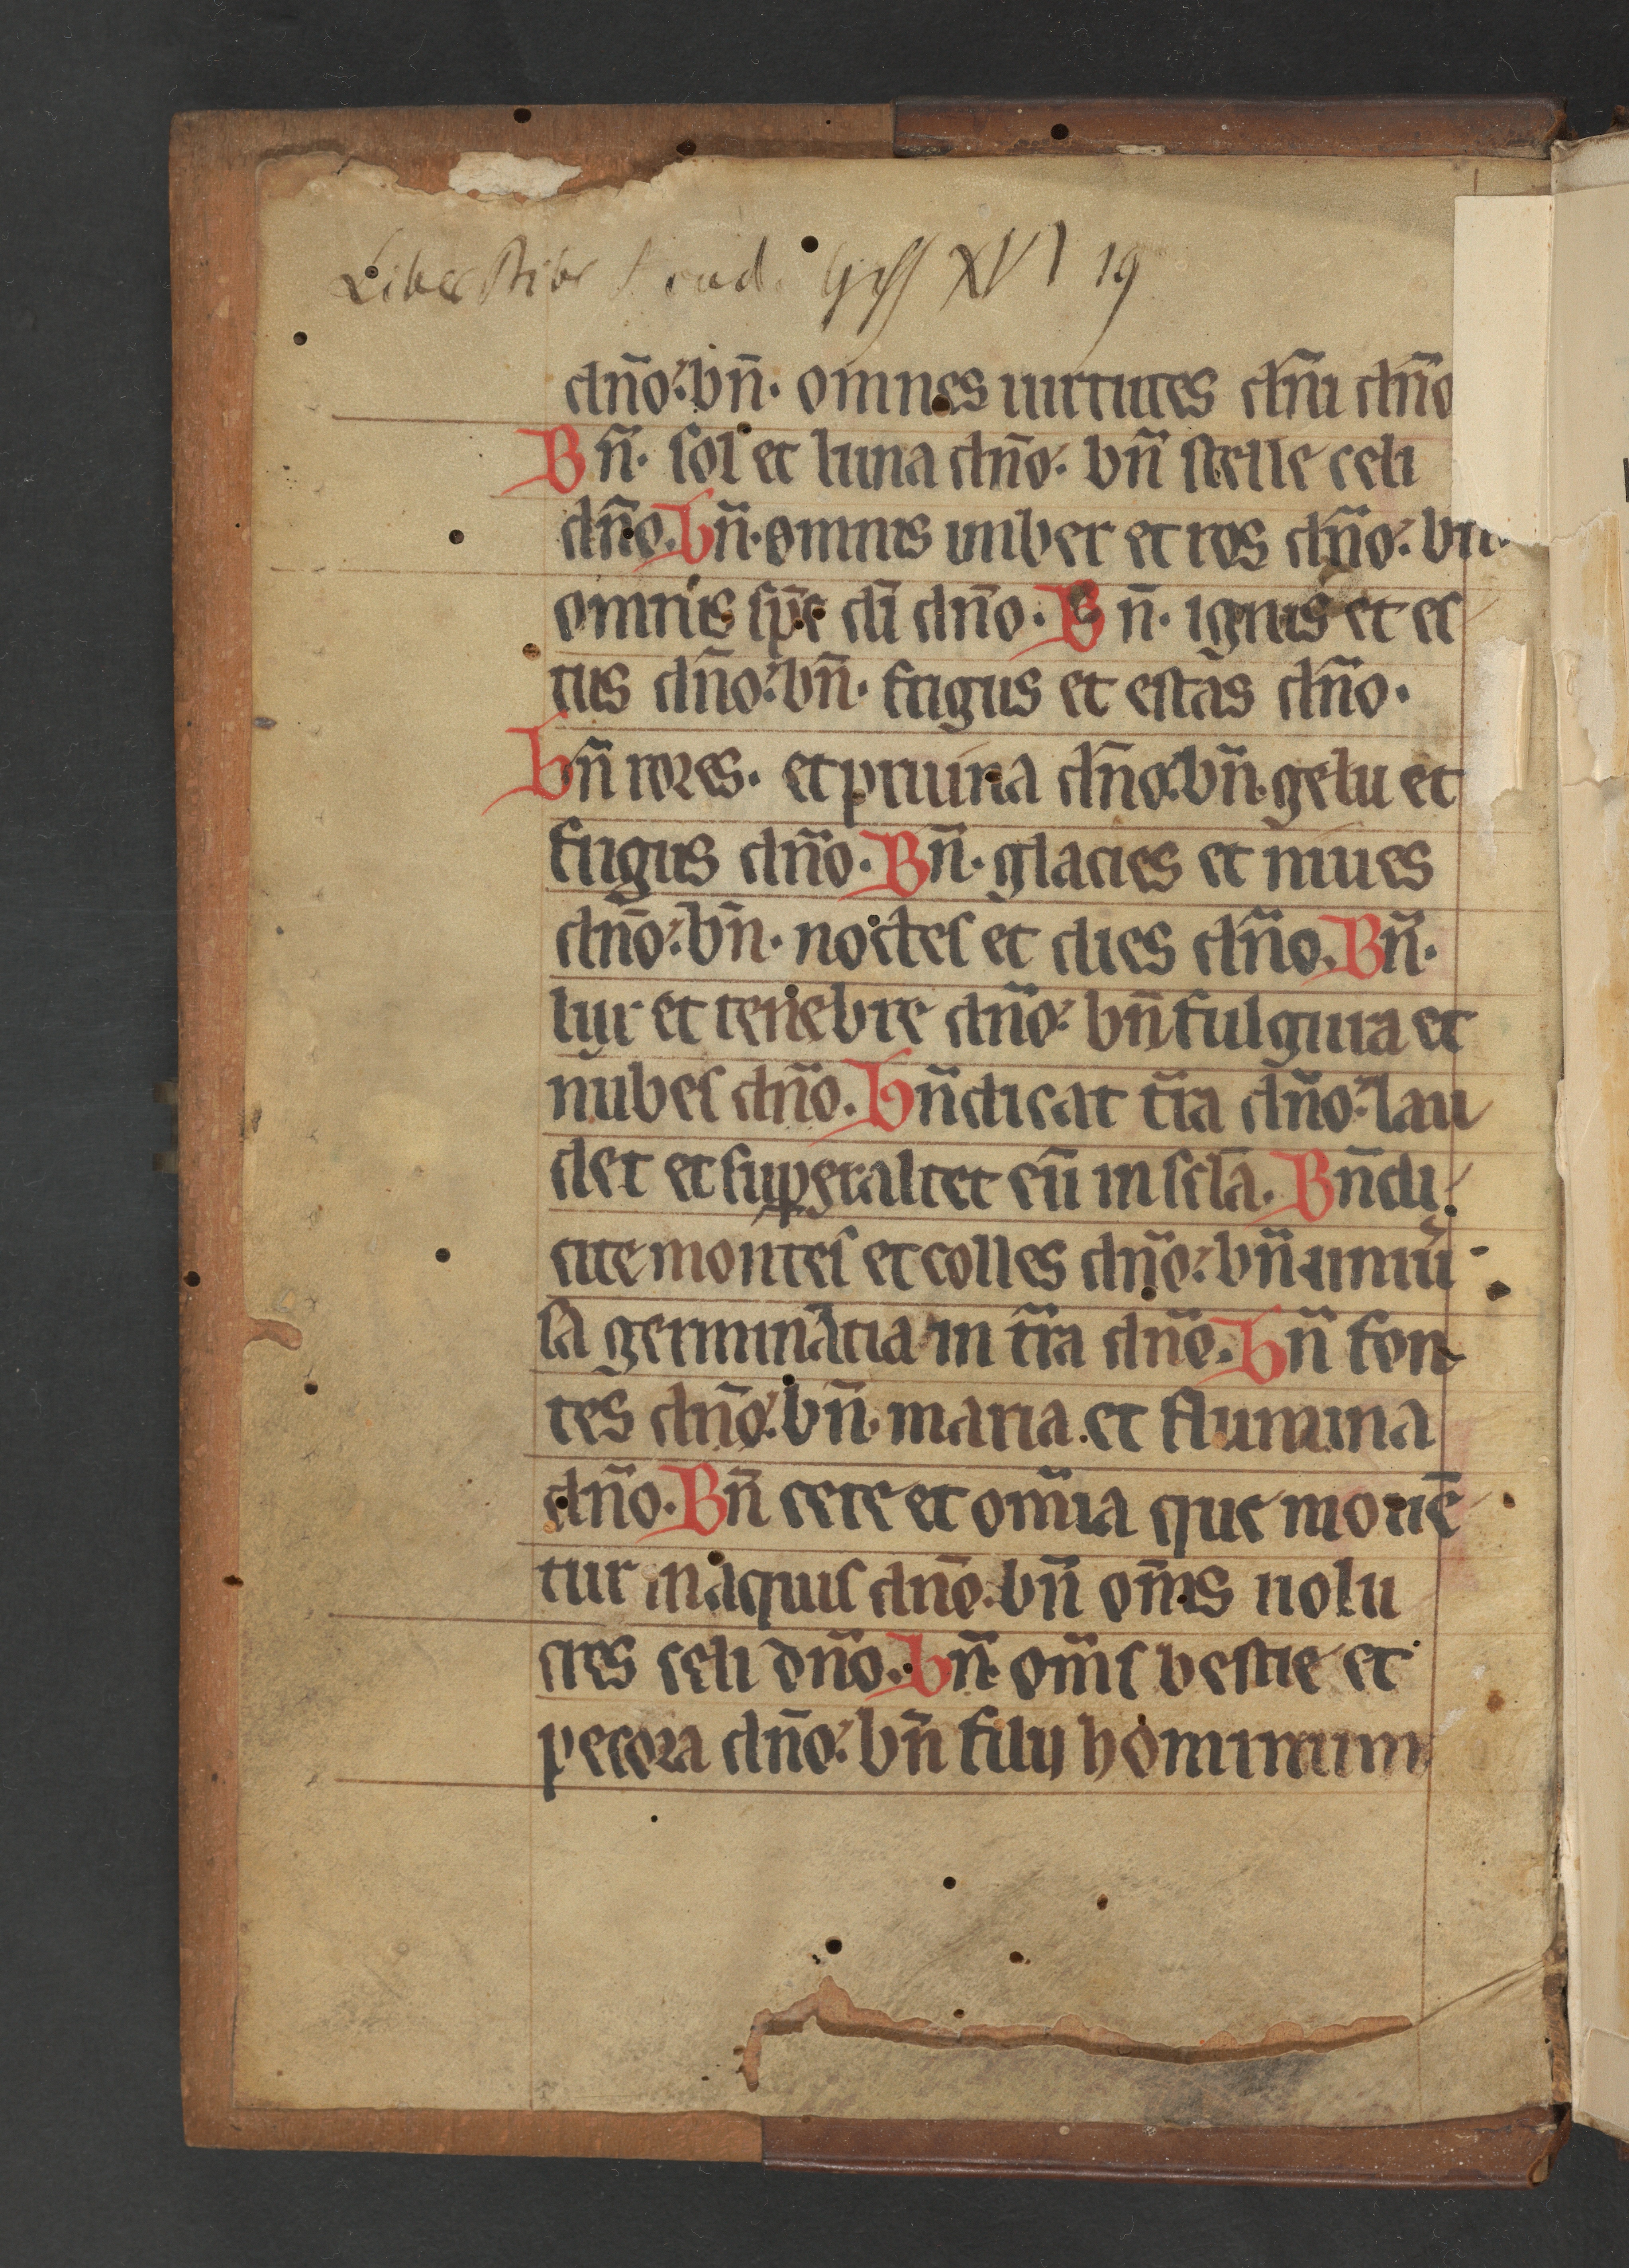 Liber Bibl XVI 19
dn̄o. bn̄. omnes uirtutes dn̄i dn̄o
Bn̄. sol et luna dn̄o. bn̄ stelle celi
dn̄o. bn̄. omnis imber et ros dn̄o. bn̄.
omnis sp̄c dī dn̄o. Bn̄. ignis et es
tus dn̄o. bn̄. frigus et estas dn̄o.
bn̄ rores. et pruina dn̄o. bn̄. gelu et
frigus dn̄o. Bn̄. glacies et niues
dn̄o. bn̄. noctes et dies dn̄o. Bn̄.
lux et tenebre dn̄o. bn̄ fulgura et
nubes dn̄o. bn̄dicat t̄ra dn̄o. lau
det et superexaltet eū in scl̄a. Bn̄di
cite montes et colles dn̄o. bn̄ uniū
sa germinātia in t̄ra dn̄o. bn̄ fon
tes dn̄o. bn̄. maria. et flumina
dn̄o. Bn̄ cete et om̄ia que mouē
tur in aquis dn̄o. bn̄ om̄s uolu
cres celi dn̄o. bn̄. om̄s bestie et
pecora dn̄o. bn̄ filij hominum